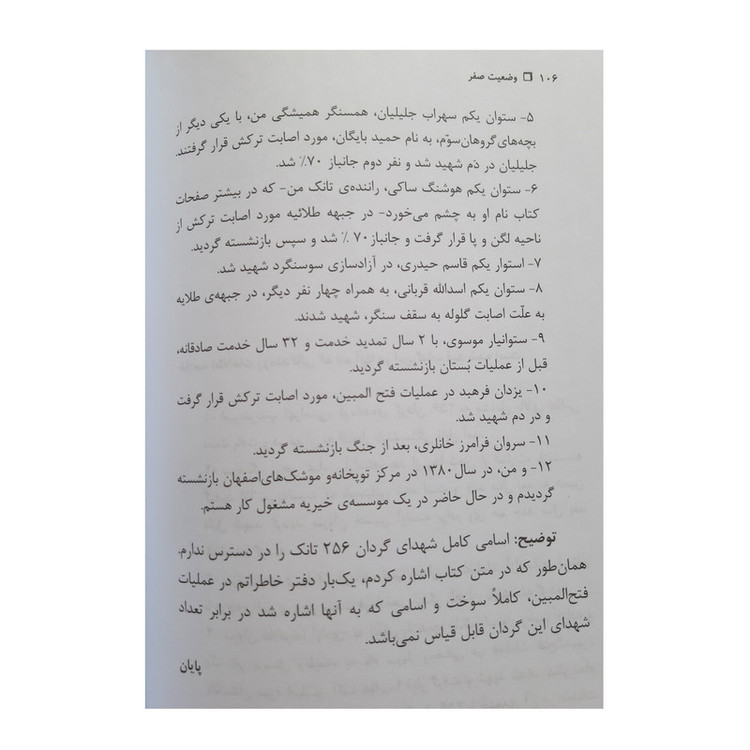 ۱۰۶ ❒ وضعیت صفر
۵- ستوان یکم سهراب جلیلیان، همسنگر همیشگی من، با یکی دیگر از
بچه‌های گروهان سوّم، به نام حمید بایگان، مورد اصابت ترکش قرار گرفتند.
جلیلیان در دَم شهید شد و نفر دوم جانباز ۷۰٪ شد.
۶- ستوان یکم هوشنگ ساکی، راننده‌ی تانک من- که در بیشتر صفحات
کتاب نام او به چشم می‌خورد- در جبهه طلائیه مورد اصابت ترکش از
ناحیه لگن و پا قرار گرفت و جانباز ۷۰ ٪ شد و سپس بازنشسته گردید.
۷- استوار یکم قاسم حیدری، در آزادسازی سوسنگرد شهید شد.
۸- ستوان یکم اسدالله قربانی، به همراه چهار نفر دیگر، در جبهه‌ی طلایه
به علّت اصابت گلوله به سقف سنگر، شهید شدند.
۹- ستوانیار موسوی، با ۲ سال تمدید خدمت و ۳۲ سال خدمت صادقانه،
قبل از عملیات بُستان بازنشسته گردید.
۱۰- یزدان فرهبد در عملیات فتح المبین، مورد اصابت ترکش قرار گرفت
و در دم شهید شد.
۱۱- سروان فرامرز خانلری، بعد از جنگ بازنشسته گردید.
۱۲- و من، در سال ۱۳۸۰ در مرکز توپخانه‌و موشک‌های‌اصفهان بازنشسته
گردیدم و در حال حاضر در یک موسسه‌ی خیریه مشغول کار هستم.
توضیح: اسامی کامل شهدای گردان ۲۵۶ تانک را در دسترس ندارم.
همان‌طور که در متن کتاب اشاره کردم، یک‌بار دفتر خاطراتم در عملیات
فتح‌المبین، کاملاً سوخت و اسامی که به آنها اشاره شد در برابر تعداد
شهدای این گردان قابل قیاس نمی‌باشد.
پایان